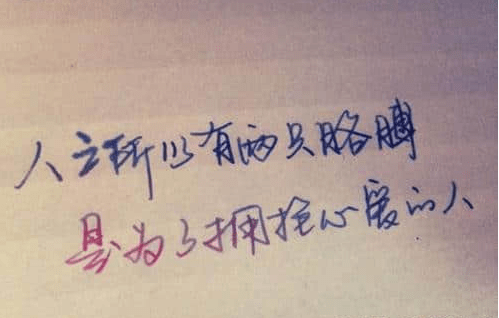 人之所以有两只胳膊
是为了拥抱心爱的人